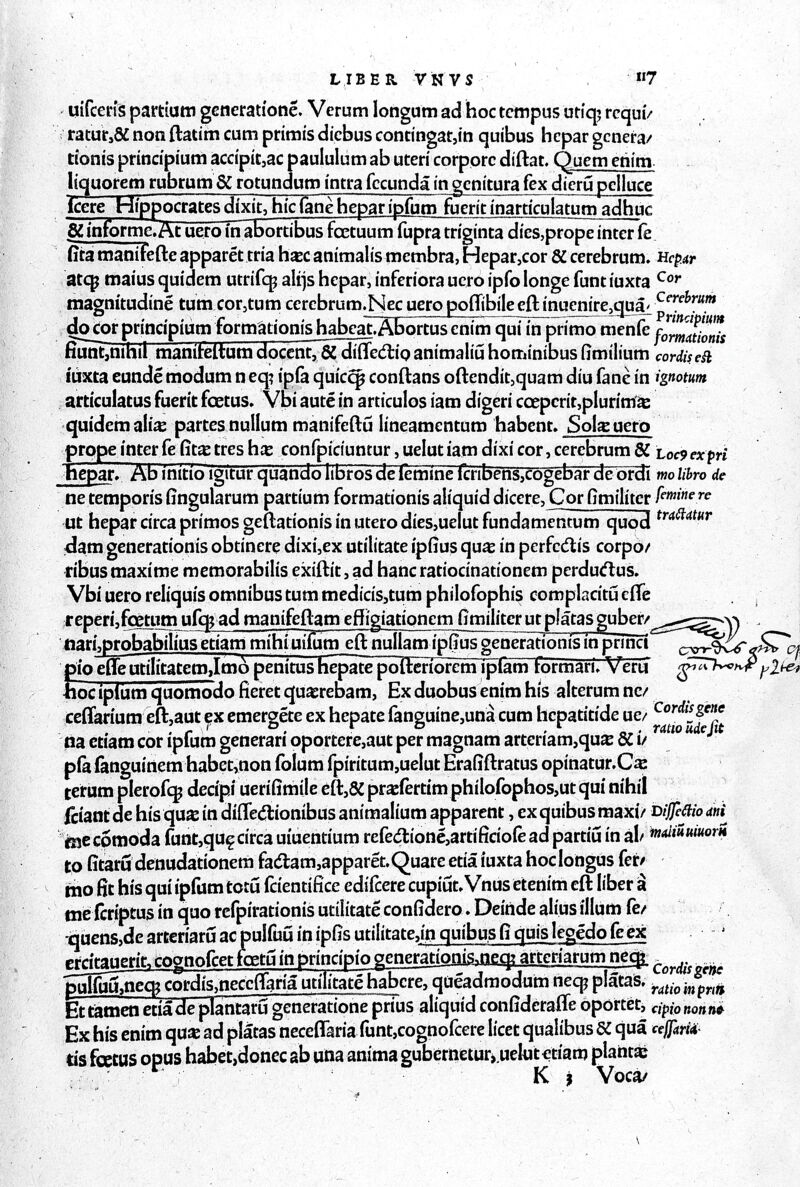 LIBER VNVS 117
uiſceris partium generationē. Verum longum ad hoc tempus utiqꝫ requi/
ratur,& non ſtatim cum primis diebus contingat,in quibus hepar genera/
tionis principium accipit,ac paululum ab uteri corpore diſtat. Quem enim
liquorem rubrum & rotundum intra ſecundā in genitura ſex dierū pelluce
ſcere Hippocrates dixit, hic ſanè hepar ipſum fuerit inarticulatum adhuc
& informe. At uero in abortibus fœtuum ſupra triginta dies,prope inter ſe
ſita manifeſte apparēt tria hæc animalis membra, Hepar,cor & cerebrum.
Hepar
atqꝫ maius quidem utriſqꝫ alijs hepar, inferiora uero ipſo longe ſunt iuxta
Cor
magnitudinē tum cor,tum cerebrum. Nec uero poſſibile eſt inuenire,quā/
Cerebrum
do cor principium formationis habeat. Abortus enim qui in primo menſe
Principium
formationis
fiunt,nihil manifeſtum docent, & diſſectio animaliū hominibus ſimilium
cordis eſt
iuxta eundē modum neqꝫ ipſa quicqꝫ conſtans oſtendit,quam diu ſanè in
ignotum
articulatus fuerit fœtus. Vbi autē in articulos iam digeri cœperit,plurimæ
quidem aliæ partes nullum manifeſtū lineamentum habent. Solæ uero
prope inter ſe ſitæ tres hæ conſpiciuntur, uelut iam dixi cor, cerebrum &
Locꝰ ex pri
hepar. Ab initio igitur quando libros de ſemine ſcribens,cogebar de ordi
mo libro de
ne temporis ſingularum partium formationis aliquid dicere, Cor ſimiliter
ſemine re
ut hepar circa primos geſtationis in utero dies,uelut fundamentum quod
tractatur
dam generationis obtinere dixi,ex utilitate ipſius quæ in perfectis corpo/
ribus maxime memorabilis exiſtit, ad hanc ratiocinationem perductus.
Vbi uero reliquis omnibus tum medicis,tum philoſophis complacitū eſſe
reperi,fœtum uſqꝫ ad manifeſtam effigiationem ſimiliter ut plātas guber/
nari,probabilius etiam mihi uiſum eſt nullam ipſius generationis in princi
cordis
pio eſſe utilitatem,Imò penitus hepate poſteriorem ipſam formari. Verū
hoc ipſum quomodo fieret quærebam, Ex duobus enim his alterum ne/
ceſſarium eſt,aut ęx emergēte ex hepate ſanguine,unà cum hepatitide ue/
Cordis gene
ratio ūde ſit
na etiam cor ipſum generari oportere,aut per magnam arteriam,quæ & i/
pſa ſanguinem habet,non ſolum ſpiritum,uelut Eraſiſtratus opinatur. Cæ
terum pleroſqꝫ decipi ueriſimile eſt,& præſertim philoſophos,ut qui nihil
ſciant de his quæ in diſſectionibus animalium apparent, ex quibus maxi/
Diſſectio ani
me cōmoda ſunt,quę circa uiuentium reſectionē,artificioſe ad partiū in al/
maliū uiuorū
to ſitarū denudationem factam,apparēt. Quare etiā iuxta hoc longus ſer/
mo fit his qui ipſum totū ſcientifice ediſcere cupiūt. Vnus etenim eſt liber à
me ſcriptus in quo reſpirationis utilitatē conſidero. Deinde alius illum ſe/
quens,de arteriarū ac pulſuū in ipſis utilitate,in quibus ſi quis legēdo ſe ex
ercitauerit, cognoſcet fœtū in principio generationis,neqꝫ arteriarum neqꝫ
pulſuū,neqꝫ cordis,neceſſariā utilitatē habere, quēadmodum neqꝫ plātas.
Cordis gene
ratio in prin
Et tamen etiā de plantarū generatione prius aliquid conſideraſſe oportet,
cipio non ne
Ex his enim quæ ad plātas neceſſaria ſunt,cognoſcere licet qualibus & quā
ceſſaria
tis fœtus opus habet,donec ab una anima gubernetur, uelut etiam plantæ
K 3 Voca/